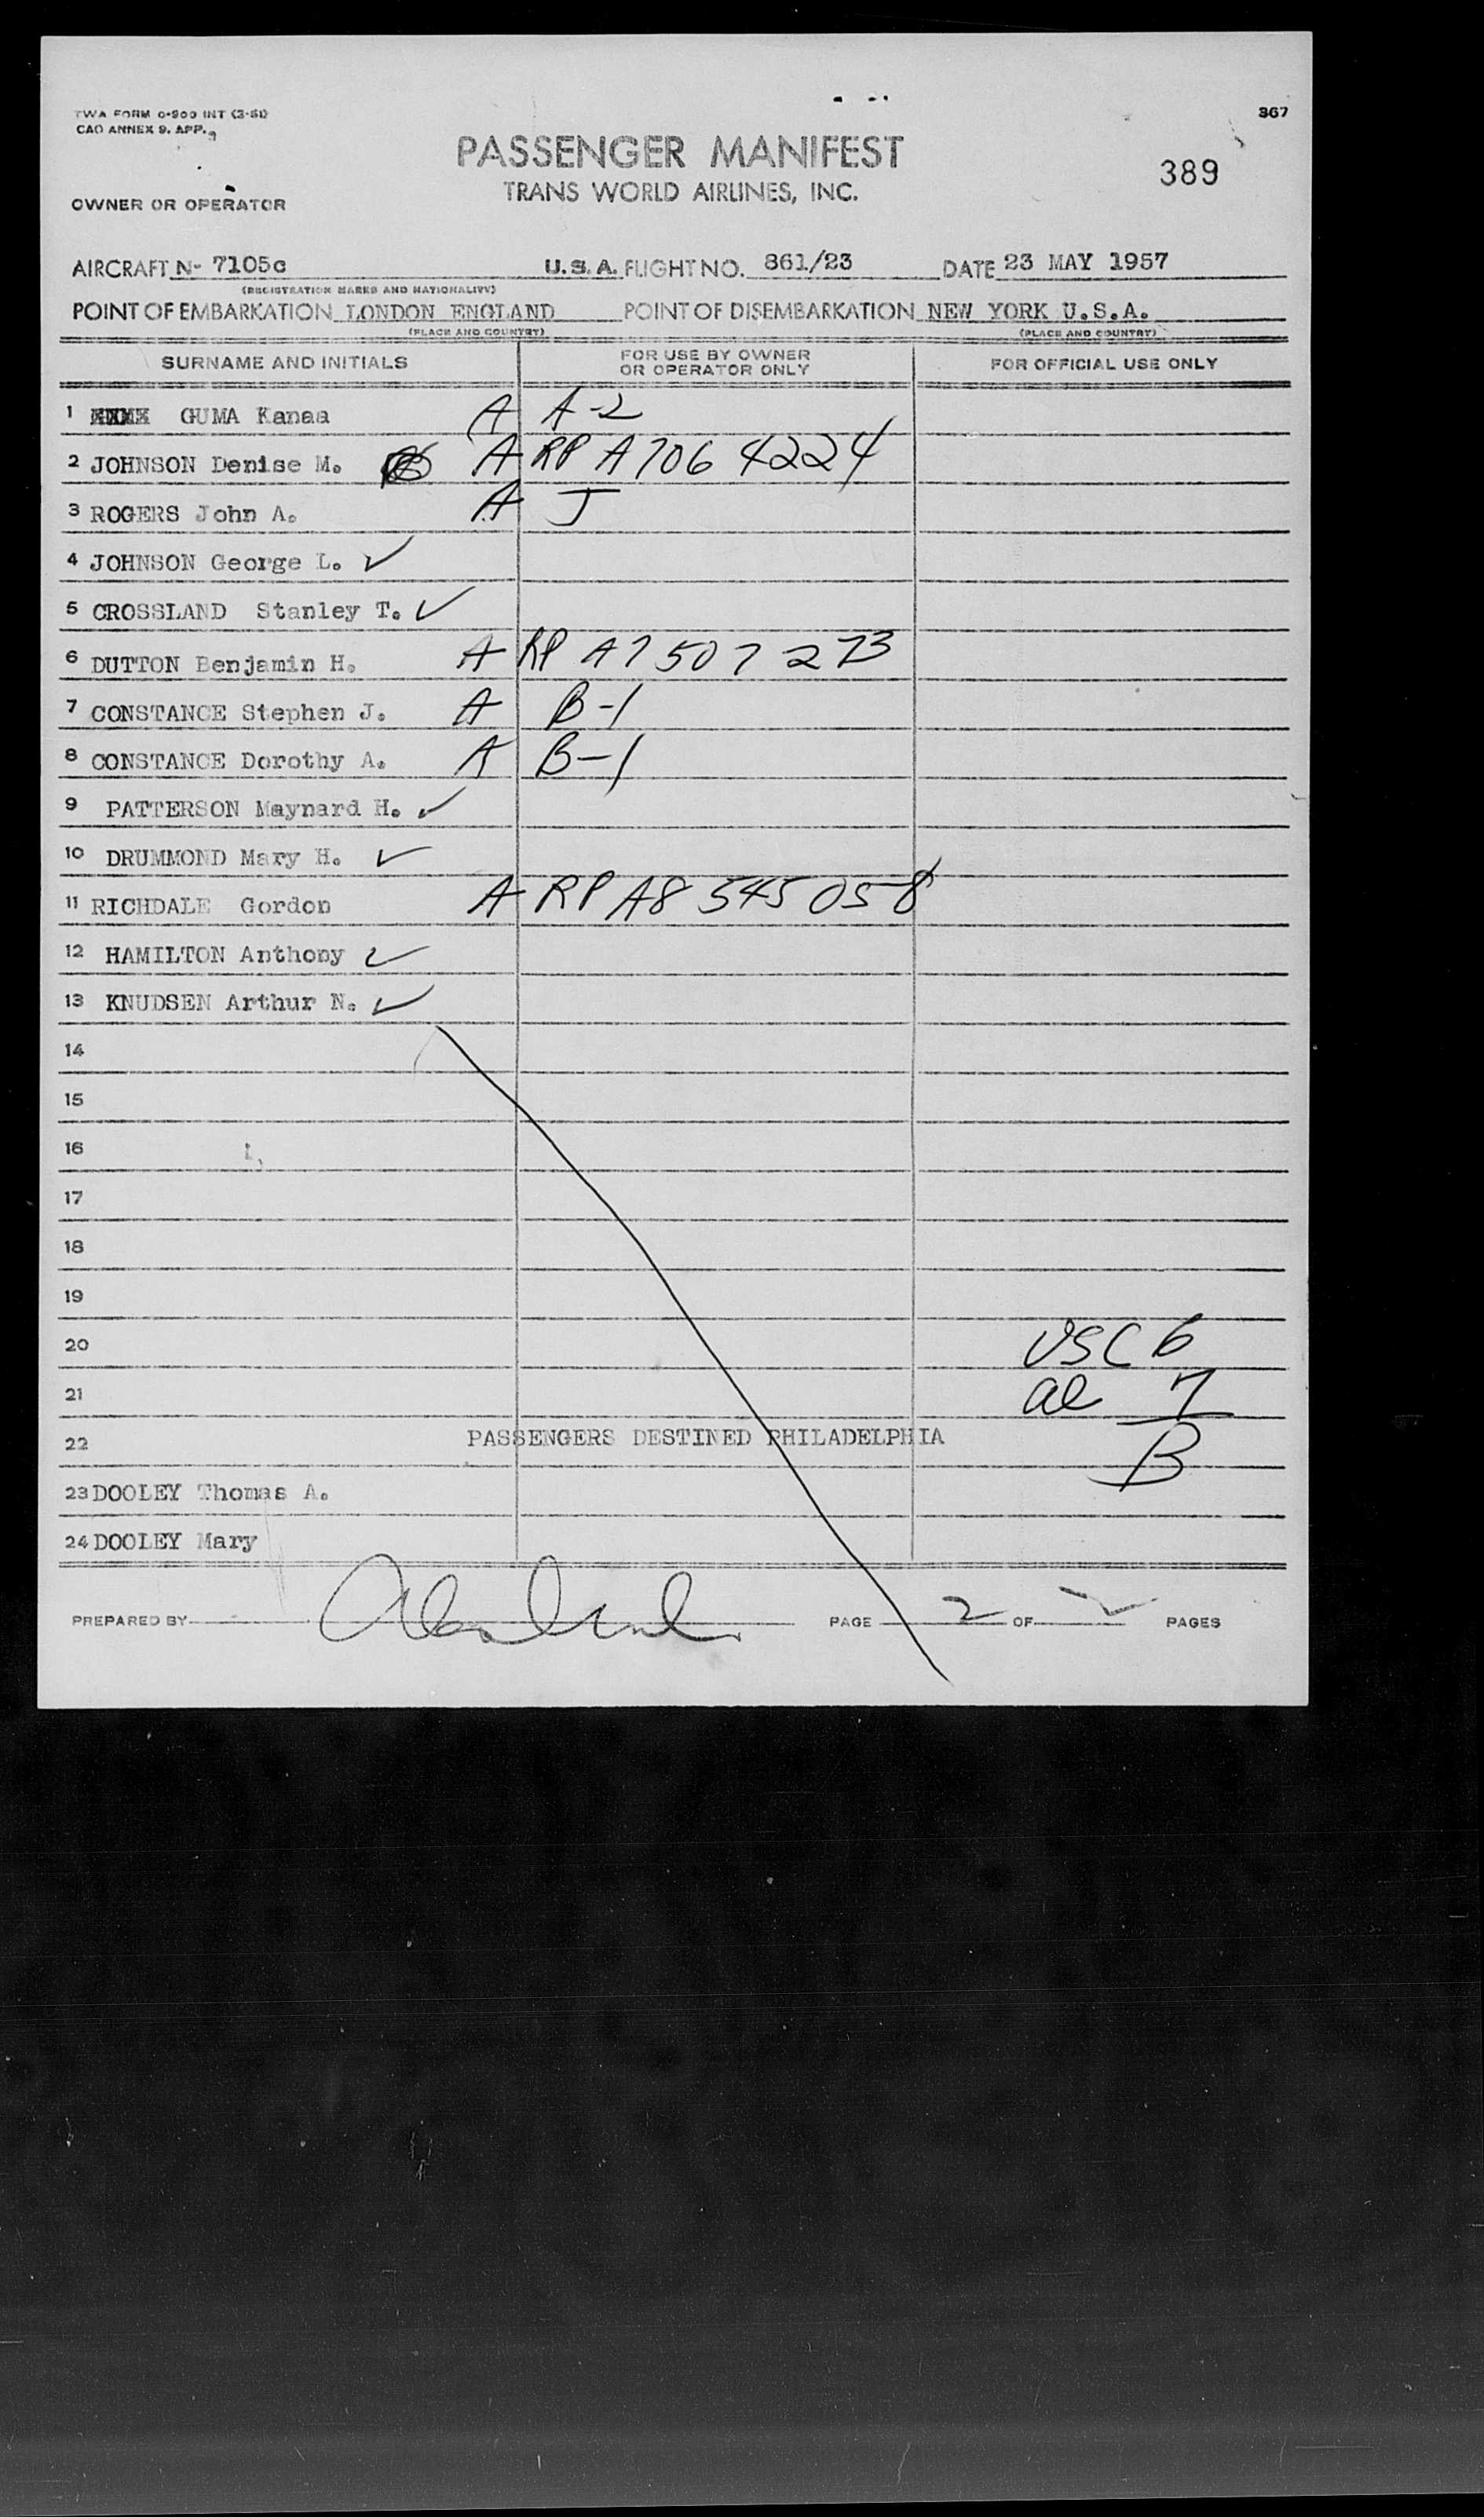 TWA FORM 0-900 INT (3-51)
CAO ANNEX 9. APP.
367
PASSENGER MANIFEST
389
TRANS WORLD AIRLINES, INC.
OWNER OR OPERATOR
AIRCRAFT N- 7105c U.S.A. FLIGHT NO. 861/23 DATE 23 MAY 1957
(REGISTRATION MARKS AND NATIONALITY)
POINT OF EMBARKATION LONDON ENGLAND POINT OF DISEMBARKATION NEW YORK U.S.A.
(PLACE AND COUNTRY) (PLACE AND COUNTRY)
SURNAME AND INITIALS FOR USE BY OWNER OR OPERATOR ONLY FOR OFFICIAL USE ONLY
1 GUMA Kanaa A A-2
2 JOHNSON Denise M. A RP A706 4224
3 ROGERS John A. A J
4 JOHNSON George L. ✓
5 CROSSLAND Stanley T. ✓
6 DUTTON Benjamin H. A RP A7 507 273
7 CONSTANCE Stephen J. A B-1
8 CONSTANCE Dorothy A. A B-1
9 PATTERSON Maynard H. ✓
10 DRUMMOND Mary H. ✓
11 RICHDALE Gordon A RP A8 545 058
12 HAMILTON Anthony ✓
13 KNUDSEN Arthur N. ✓
14
15
16
17
18
19
20 USC 6
21 al 7
22 PASSENGERS DESTINED PHILADELPHIA 13
23 DOOLEY Thomas A.
24 DOOLEY Mary
PREPARED BY PAGE 2 OF 2 PAGES